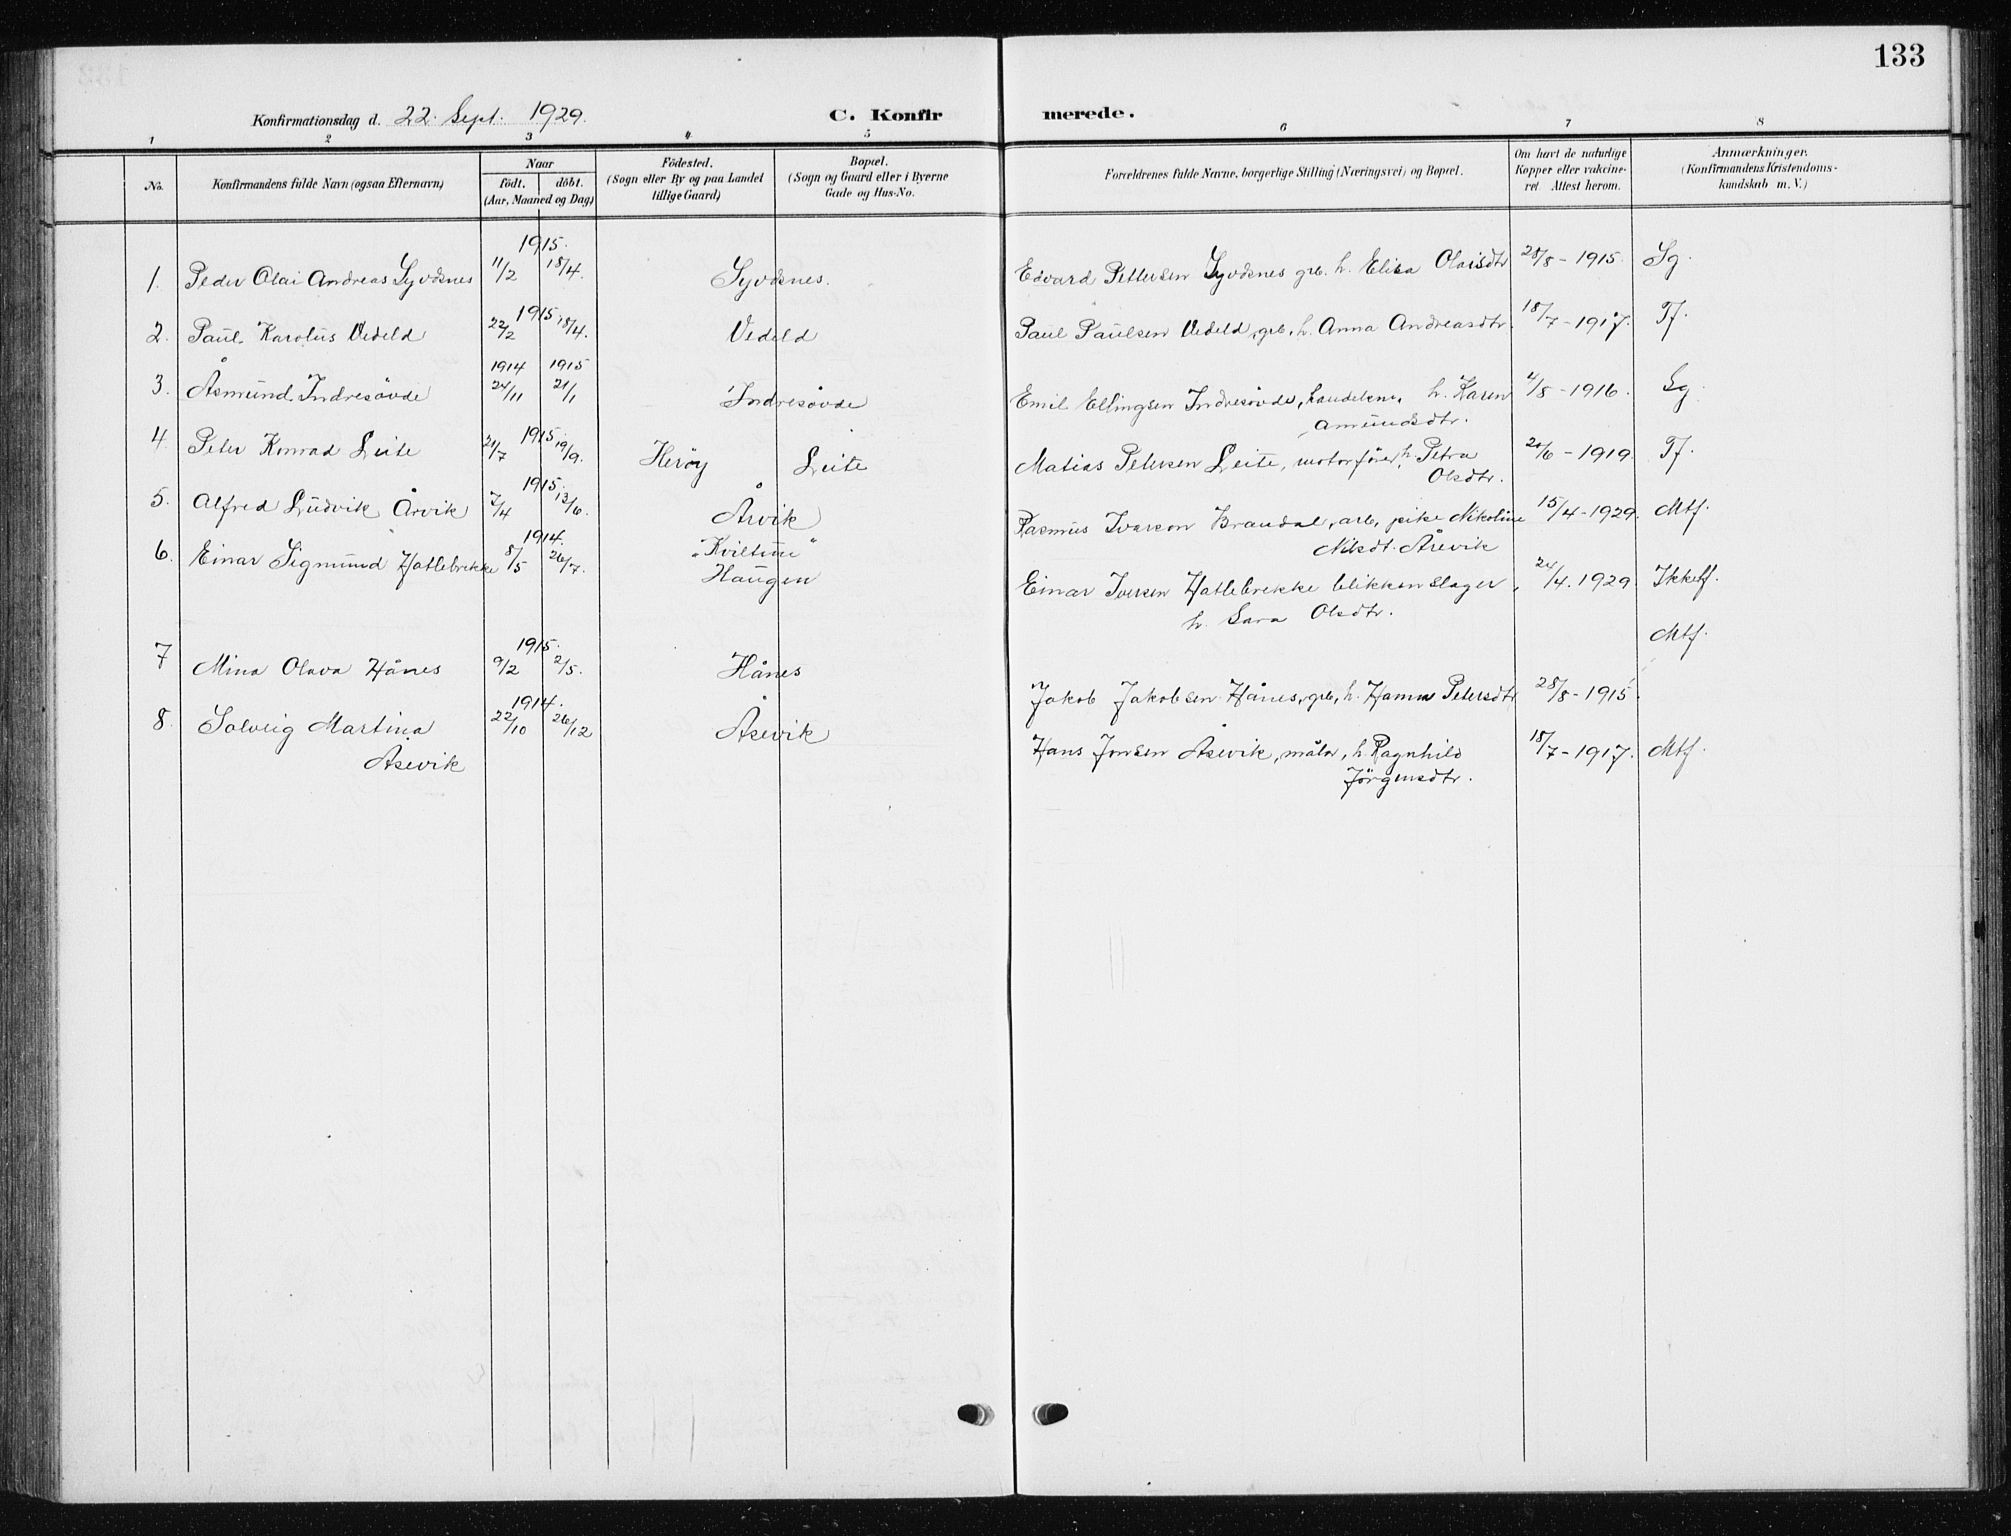 133
Konfirmationsdag d. 22. Sept. 1929.
C. Konfirmerede.
1 2 3 4 5 6 7 8
No.
Konfirmandens fulde Navn (ogsaa Efternavn)
Naar
födt. döbt.
(Aar, Maaned og Dag)
Födested.
(Sogn eller By og paa Landet
tillige Gaard)
Bopæl.
(Sogn og Gaard eller i Byerne
Gade og Hus-No.
Forældrenes fulde Navne, borgerlige Stilling (Næringsvei) og Bopæl.
Om havt de naturlige
Kopper eller vakcine-
ret. Attest herom.
Anmærkninger.
(Konfirmandens Kristendoms-
kundskab m. V.)
1915.
1. Peder Olai Andreas Syvdsnes 11/2 18/4. Syvdsnes. Edvard Pettersen Syvdsnes grb. h. Elisa Olaisdtr 28/8 - 1915. Sg.
1915
2. Paul Karolus Vedeld 22/2 18/4. Vedeld Paul Paulsen Vedeld, grb, h. Anna Andreasdtr. 18/7 - 1917. Tf.
1914 1915
3. Åsmund Indresövde 24/11 21/1 Indresövde Emil Ellingsen Indresövde, handelsm, h. Karen 4/8 - 1916. Sg.
Amundsdtr.
1915
4. Peter Konrad Leite 21/7 19/9. Heröy Leite Matias Petersen Leite, motorförer, h. Petra 20/6 - 1919. Tf.
Olsdtr.
1915.
5. Alfred Ludvik Årvik 7/4 13/6. Årvik Rasmus Iverson Brandal, arb, pike Nikoline 15/4 - 1929. Mtf.
Nilsdt. Årevik
1914.
6. Einar Sigmund Hatlebrekke 8/5 26/7. "Kviltun"
Haugen Einar Iversen Hatlebrekke blikkenslager, 24/4. 1929 Ikketf.
h. Sara Olsdtr.
Mtf.
1915.
7 Mina Olava Hånes 9/2 2/5. Hånes Jakob Jakobsen Hånes, grb, h. Hanna Petersdtr 28/8 - 1915
1914.
8. Solveig Martina 22/10 26/12 Åsevik Hans Jonsen Åsevik, målar, h. Ragnhild 18/7 - 1917. Mtf.
Åsevik Jörgensdtr.